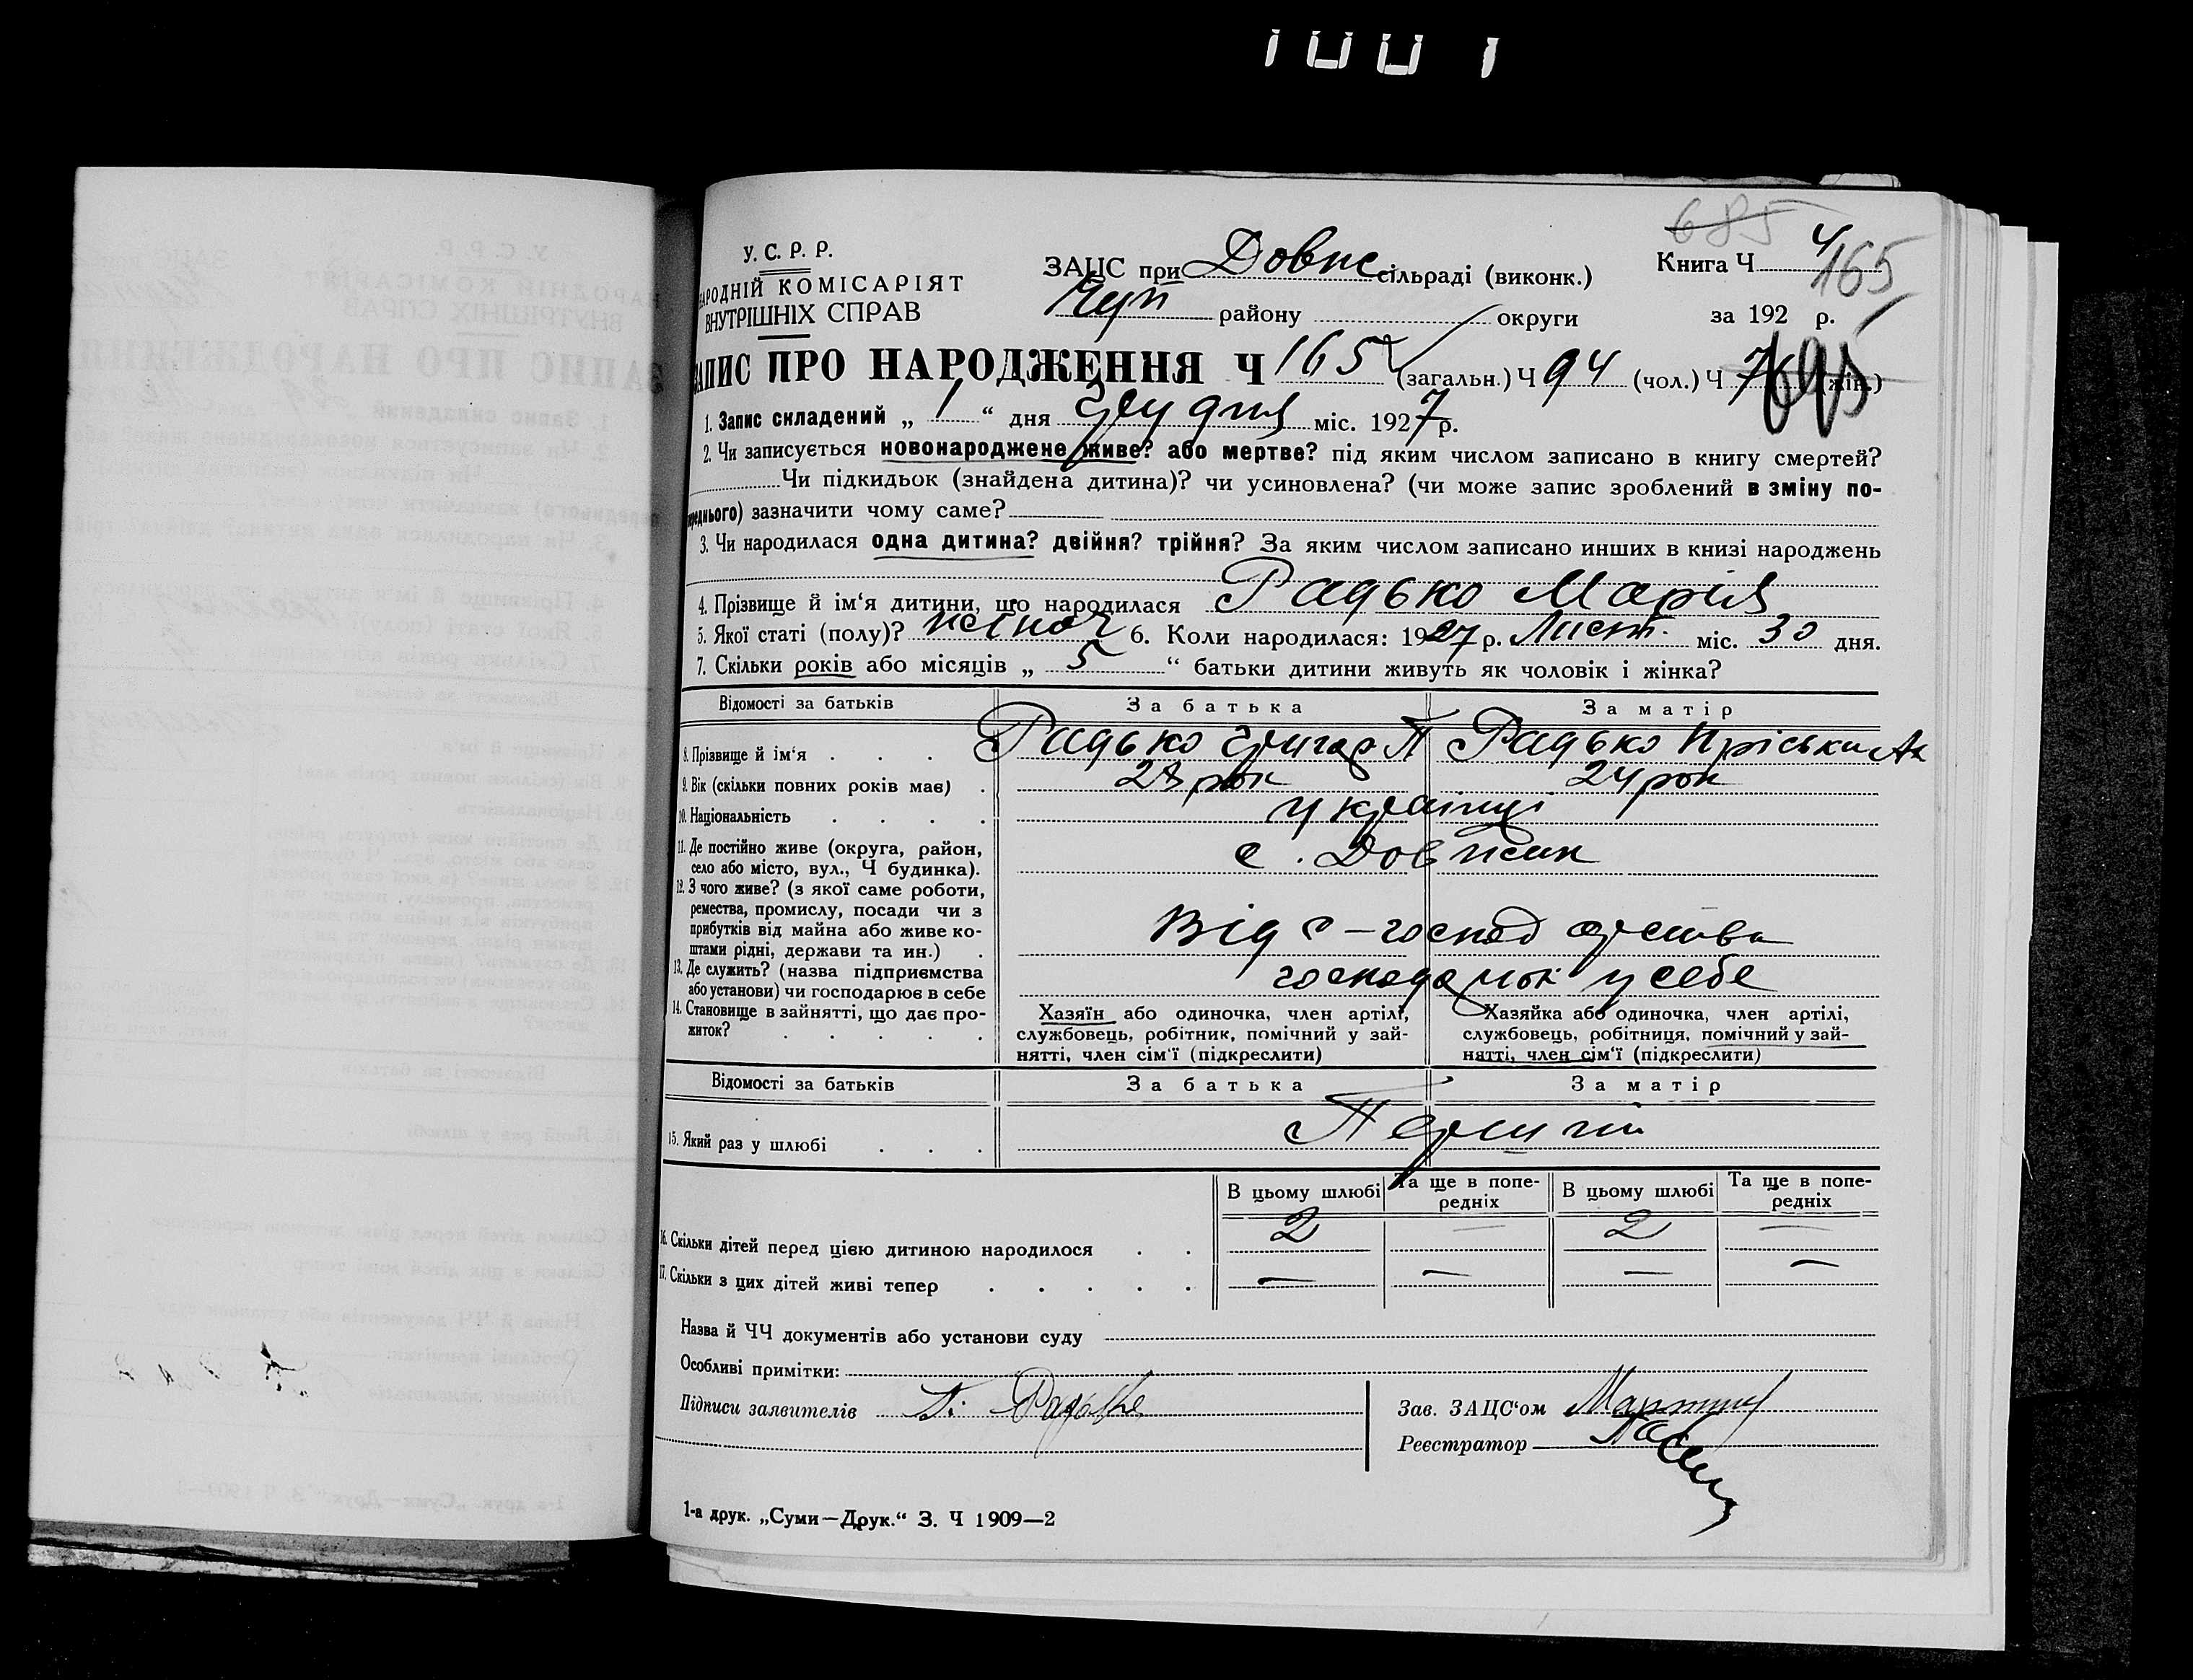 685
У. С. Р. Р.
НАРОДНІЙ КОМІСАРІЯТ
ВНУТРІШНІХ СПРАВ
ЗАЦС при Довжсільраді (виконк.)
району округи
Книга Ч. 4
165
за 192 р.
ЗАПИС ПРО НАРОДЖЕННЯ Ч 165 (загальн.) Ч 94 (чол.) Ч (жін.)
695
1. Запис складений „ 1 “ дня Грудня міс. 1927 р.
2. Чи записується новонароджене живе? або мертве? під яким числом записано в книгу смертей?
Чи підкидьок (знайдена дитина)? чи усиновлена? (чи може запис зроблений в зміну по-
реднього) зазначити чому саме?
3. Чи народилася одна дитина? двійня? трійня? За яким числом записано инших в книзі народжень
4. Прізвище й ім‘я дитини, що народилася Радько Марія
5. Якої статі (полу)? жіноч 6. Коли народилася: 1927 р. Лист. міс. 30 дня.
7. Скільки років або місяців „ 5 “ батьки дитини живуть як чоловік і жінка?
Відомості за батьків За батька За матір
8. Прізвище й ім‘я Радько Григор П Радько Пріська Ан
9. Вік (скільки повних років має) 28 рок 24 рок
10. Національність українці
11. Де постійно живе (округа, район,
село або місто, вул., Ч будинка).
с. Довжик
12. З чого живе? (з якої саме роботи,
ремества, промислу, посади чи з
прибутків від майна або живе ко-
штами рідні, держави та ин.)
Від с-господарства
13. Де служить? (назва підприємства
або установи) чи господарює в себе
у себе
14. Становище в зайнятті, що дає про-
житок?
Хазяїн або одиночка, член артілі,
службовець, робітник, помічний у зай-
нятті, член сім‘ї (підкреслити)
Хазяйка або одиночка, член артілі,
службовець, робітниця, помічний у зай-
нятті, член сім‘ї (підкреслити)
Відомості за батьків За батька За матір
15. Який раз у шлюбі Перший
В цьому шлюбі Та ще в попе-
редніх В цьому шлюбі Та ще в попе-
редніх
16. Скільки дітей перед цією дитиною народилося 2 — 2 —
17. Скільки з цих дітей живі тепер — — — —
Назва й ЧЧ документів або установи суду
Особливі примітки:
Підписи заявителів Радько
Зав. ЗАЦС‘ом
Реєстратор
1-а друк. „Суми—Друк.“ З. Ч 1909—2